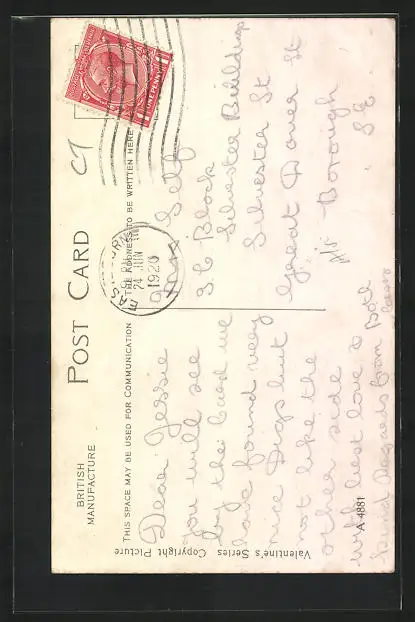 POST CARD
BRITISH
MANUFACTURE
THIS SPACE MAY BE USED FOR COMMUNICATION
THE ADDRESS TO BE WRITTEN HERE
ONE PENNY
EASTBOURNE
24 JUN
1920
C7
Dear Jessie
you will see
by the card we
have found very
nice Digs but
not like the
other side
with best love &
kind Regards from both
Self
3 C Block
Silvester Buildings
Silvester St
Great Dover St
Borough
S E
Valentine's Series Copyright Picture
A 4881